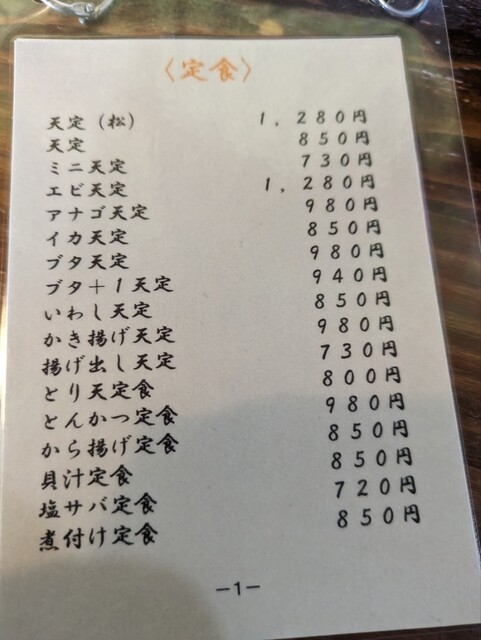 〈定食〉
天定（松） 1,280円
天定 850円
ミニ天定 730円
エビ天定 1,280円
アナゴ天定 980円
イカ天定 850円
ブタ天定 980円
ブタ＋1天定 940円
いわし天定 850円
かき揚げ天定 980円
揚げ出し天定 730円
とり天定食 800円
とんかつ定食 980円
から揚げ定食 850円
貝汁定食 850円
塩サバ定食 720円
煮付け定食 850円
－1－